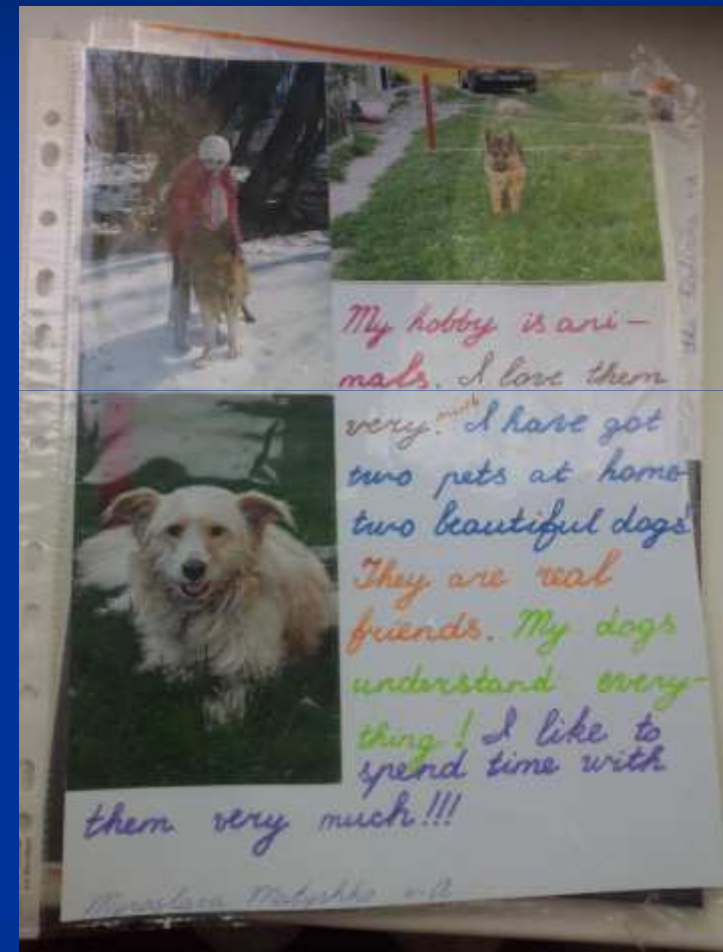 My hobby is ani-
mals. I love them
very much. I have got
two pets at home-
two beautiful dogs!
They are real
friends. My dogs
understand every-
thing! I like to
spend time with
them very much!!!